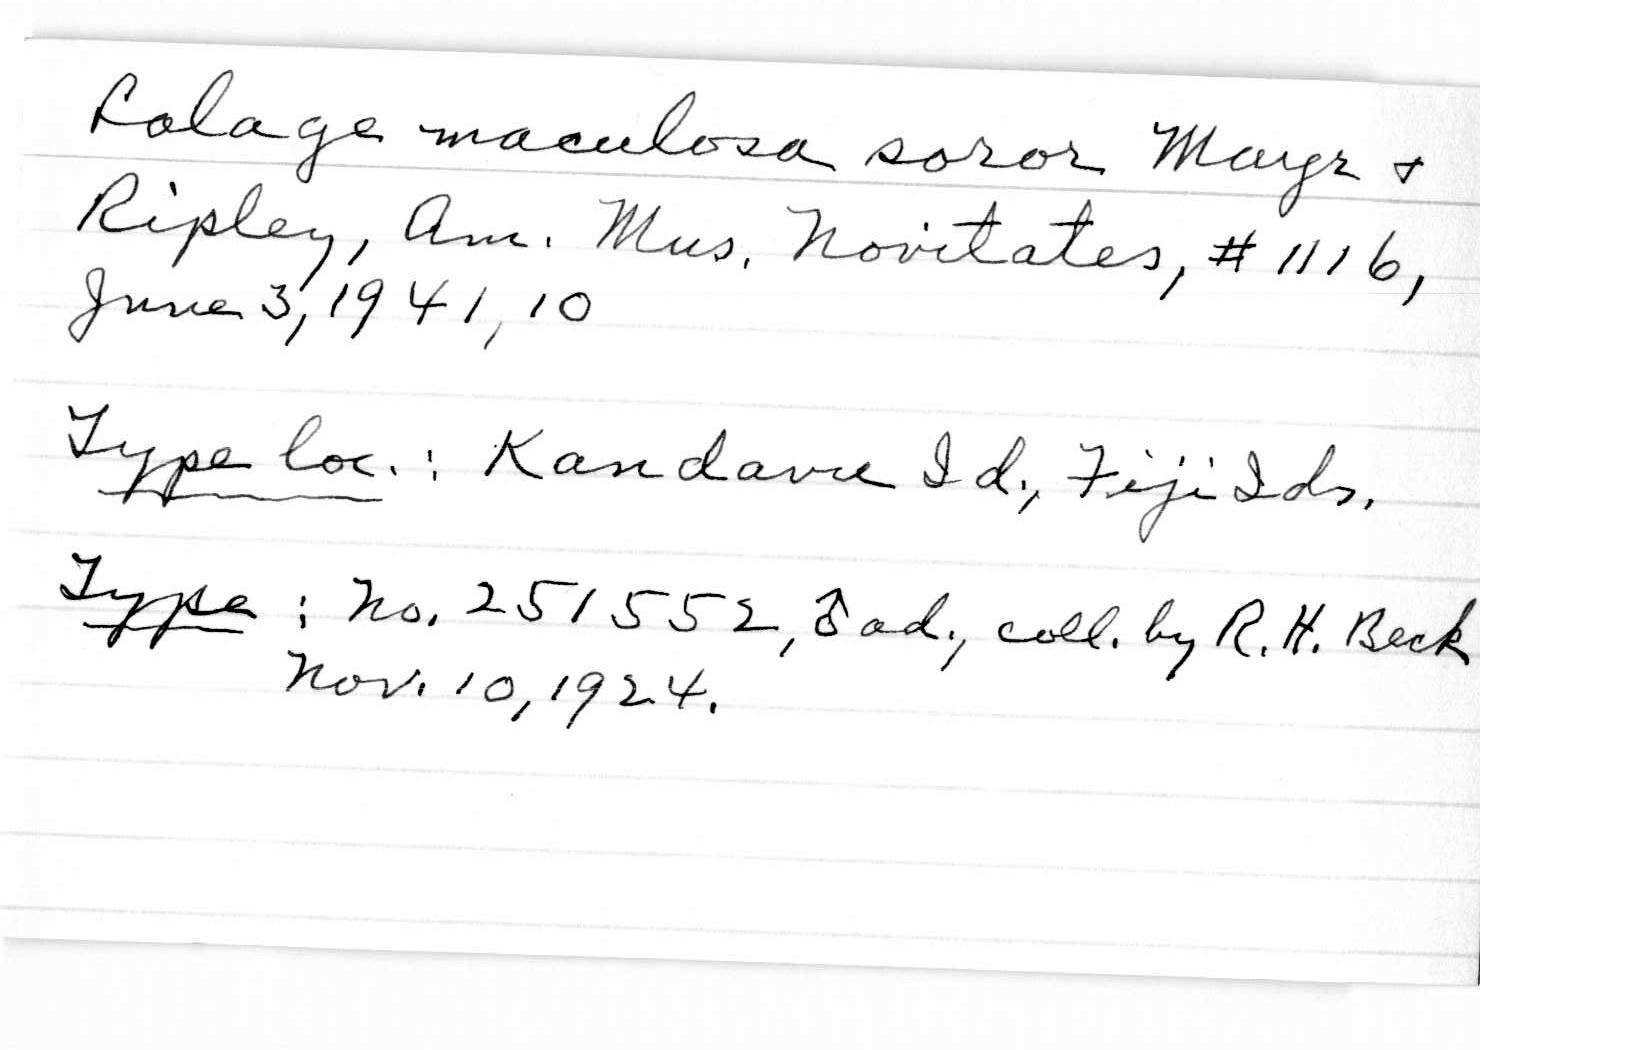 Lalage maculosa soror Mayr &
Ripley, Am. Mus. Novitates, # 1116,
June 3, 1941, 10
Type loc.: Kandavu Id., Fiji Ids.
Type: No. 251552, ♂ ad., coll. by R. H. Beck
Nov. 10, 1924.